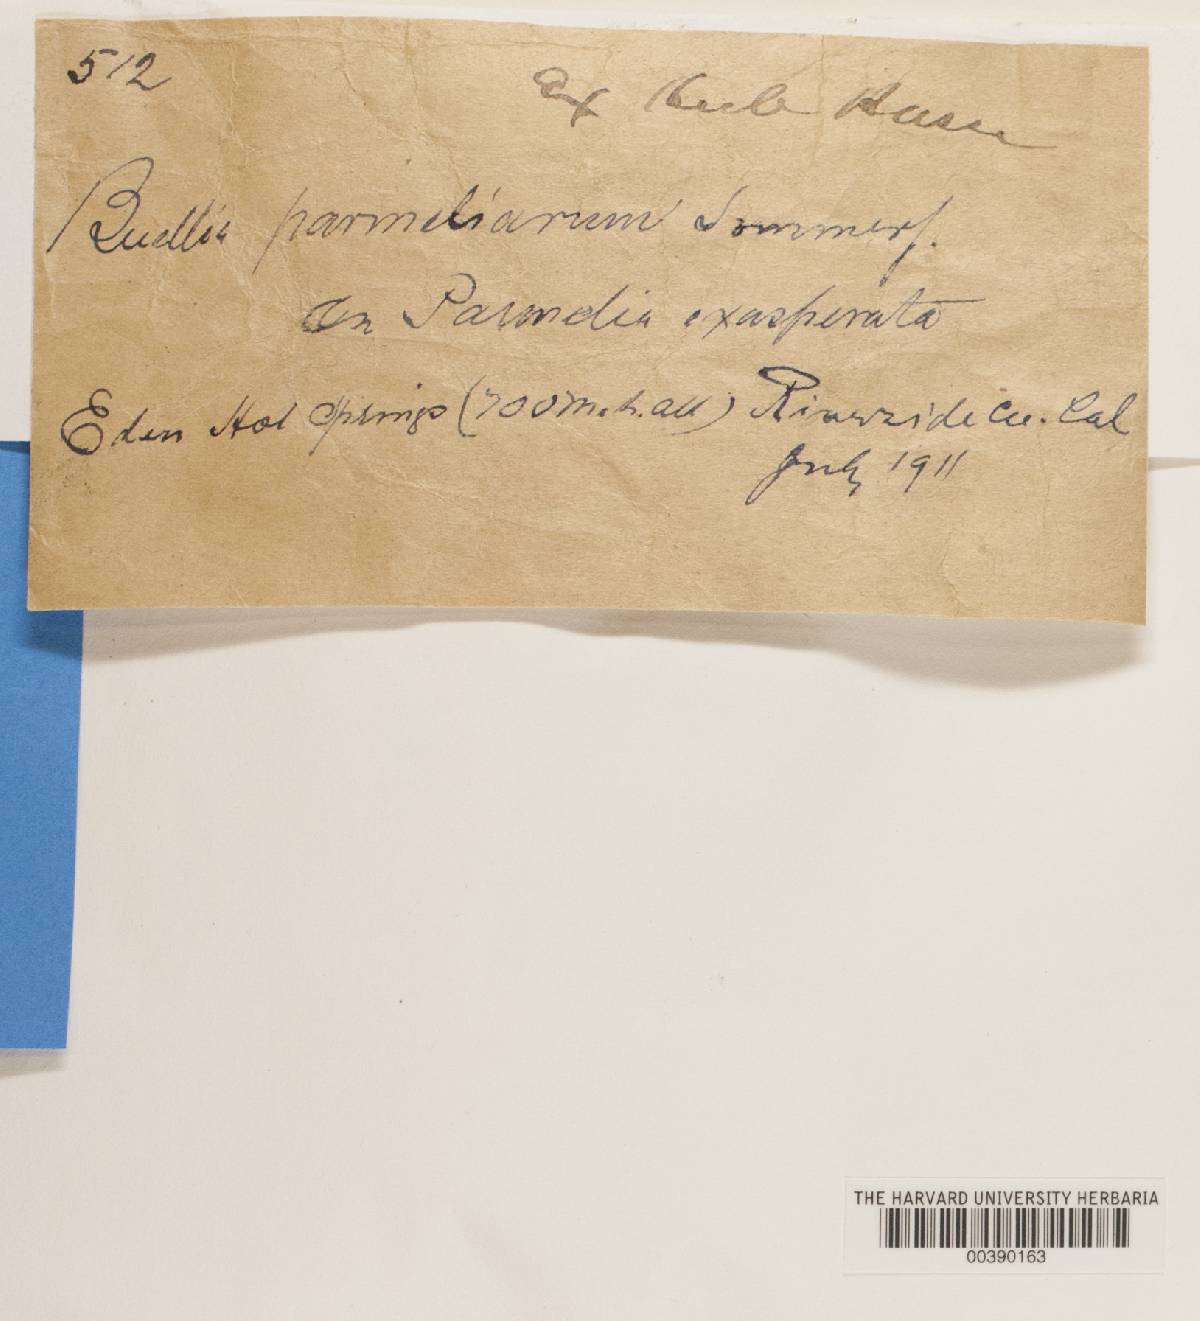 512
Ex Herb Hasse
Buellia parmeliarum Sommerf.
On Parmelia exasperata
Eden Hot Springs (700 Met. alt) Riverside Co. Cal
July 1911
THE HARVARD UNIVERSITY HERBARIA
00390163